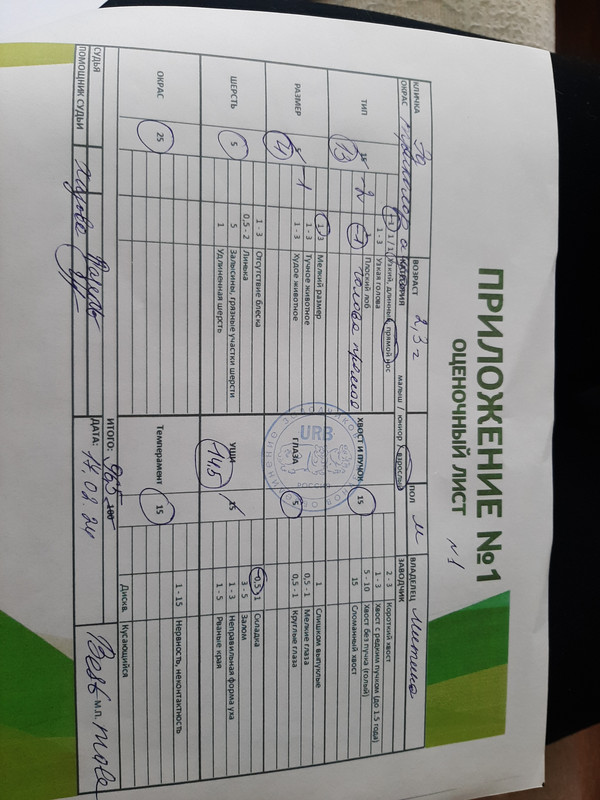 ПРИЛОЖЕНИЕ №1
ОЦЕНОЧНЫЙ ЛИСТ
N1
КЛИЧКА
ВОЗРАСТ 2,3 г
ПОЛ М
ВЛАДЕЛЕЦ Митина
ОКРАС
КАТЕГОРИЯ
малыш / юниор / взрослый
ЗАВОДЧИК
ТИП
15 13 -2
-1 1 / 1 Узкий, длинный, прямой нос
1 - 3 Узкая голова
-1 Плоский лоб
голова прямая
РАЗМЕР
5 4 -1
1 3 Мелкий размер
1 - 3 Тучное животное
1 - 3 Худое животное
ШЕРСТЬ
5
1 - 3 Отсутствие блеска
0,5 - 2 Линька
5 Залысины, грязные участки шерсти
1 Удлиненная шерсть
ОКРАС
25
ХВОСТ И ПУЧОК
15
2 - 3 Короткий хвост
1 - 3 Хвост с редким пучком (до 1.5 года)
5 - 10 Хвост без пучка (голый)
15 Сломанный хвост
ГЛАЗА
5
1 Слишком выпуклые
0,5 - 1 Мелкие глаза
0,5 - 1 Круглые глаза
УШИ
15 14,5
-0,5 1 Складка
3 - 5 Залом
1 - 3 Неправильная форма уха
1 - 5 Рваные края
Темперамент
15
1 - 15 Нервность, неконтактность
Дискв. Кусающийся
URB
РОССИИ
СУДЬЯ
ПОМОЩНИК СУДЬИ
ИТОГО: 96,5 100
ДАТА: 17.08.24
М.П.
Best male